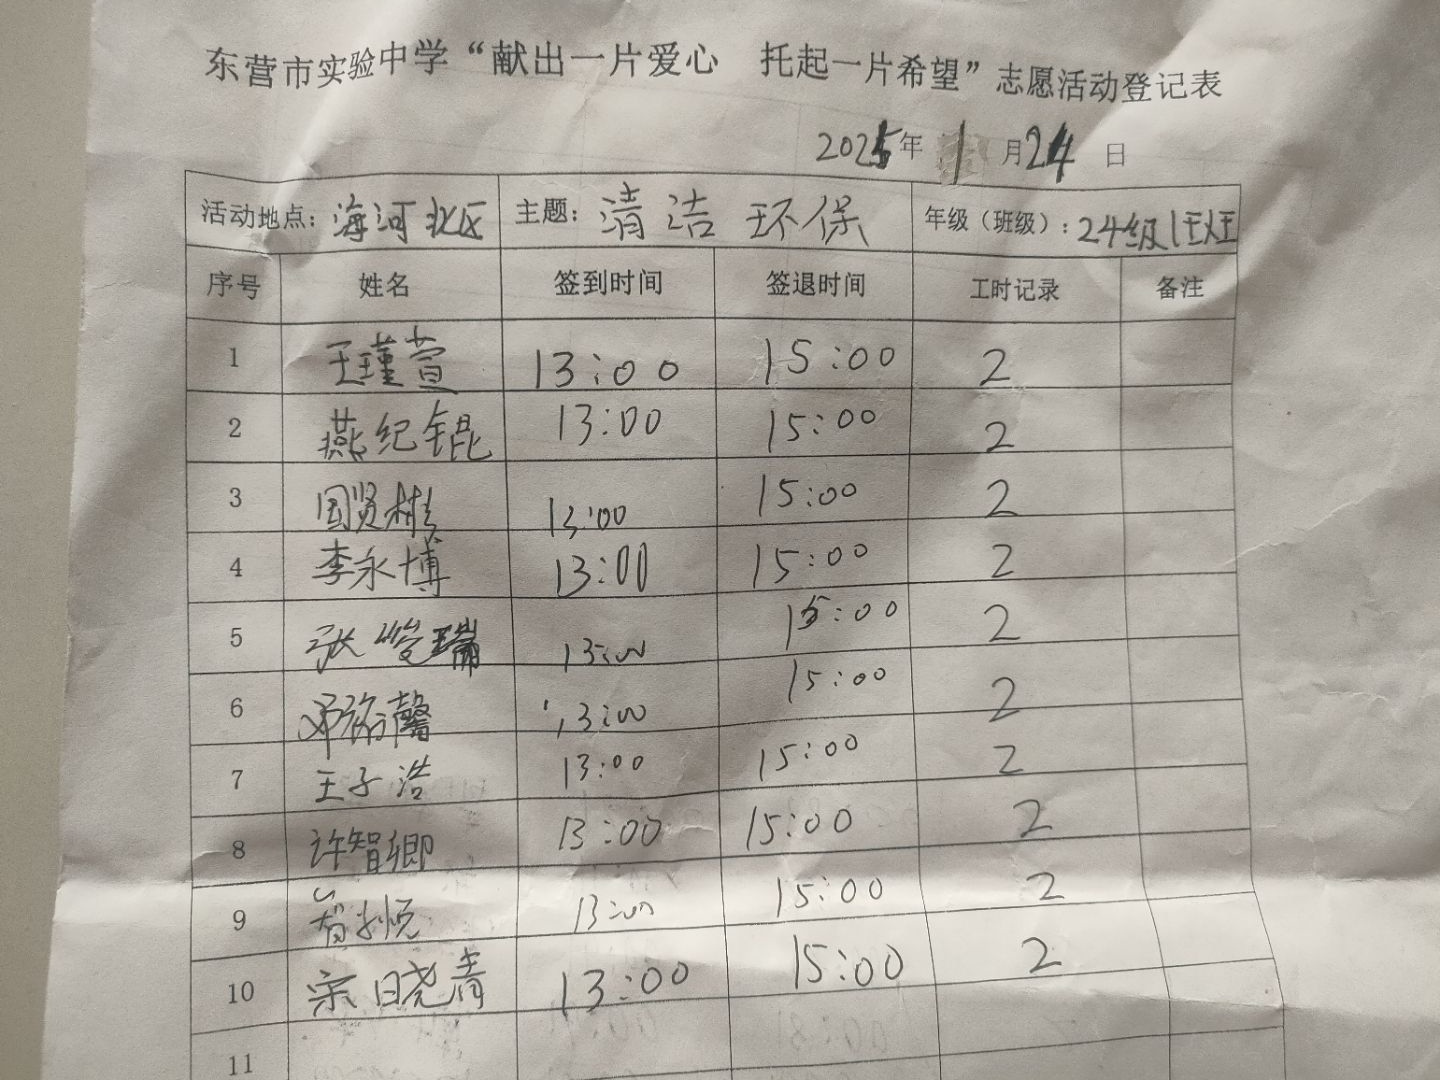 东营市实验中学“献出一片爱心 托起一片希望”志愿活动登记表
2025年 1 月24 日
活动地点：海河北区 主题：清洁环保 年级（班级）：24级1班
序号 姓名 签到时间 签退时间 工时记录 备注
1 王瑾萱 13:00 15:00 2
2 燕纪锟 13:00 15:00 2
3 国贤彬 13:00 15:00 2
4 李永博 13:00 15:00 2
5 张峻瑞 13:00 15:00 2
6 邓裕馨 13:00 15:00 2
7 王子浩 13:00 15:00 2
8 许智卿 13:00 15:00 2
9 13:00 15:00 2
10 宗晓青 13:00 15:00 2
11